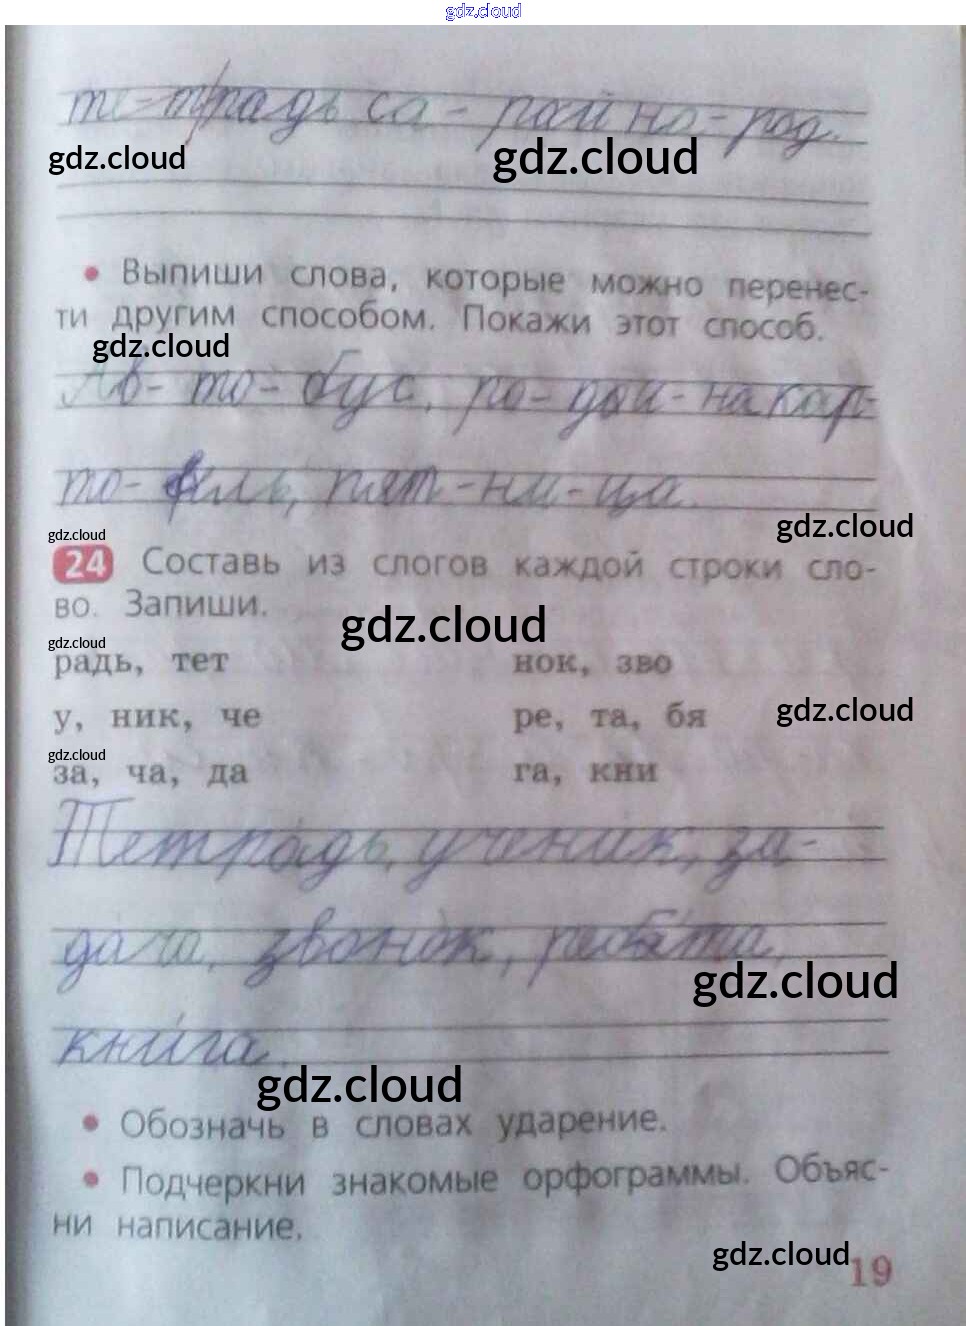 gdz.cloud
те-традь са-рай на-род.
gdz.cloud gdz.cloud
• Выпиши слова, которые можно перенес-
ти другим способом. Покажи этот способ.
gdz.cloud
Ав-то-бус, ро-дой-на кар-
то-фль, пят-ни-ца.
gdz.cloud
gdz.cloud
24 Составь из слогов каждой строки сло-
во. Запиши.
gdz.cloud
gdz.cloud
радь, тет нок, зво
у, ник, че ре, та, бя
gdz.cloud
gdz.cloud
за, ча, да га, кни
Тетрадь, ученик, за-
дача, звонок, ребята,
gdz.cloud
книга.
gdz.cloud
• Обозначь в словах ударение.
• Подчеркни знакомые орфограммы. Объяс-
ни написание.
gdz.cloud
19